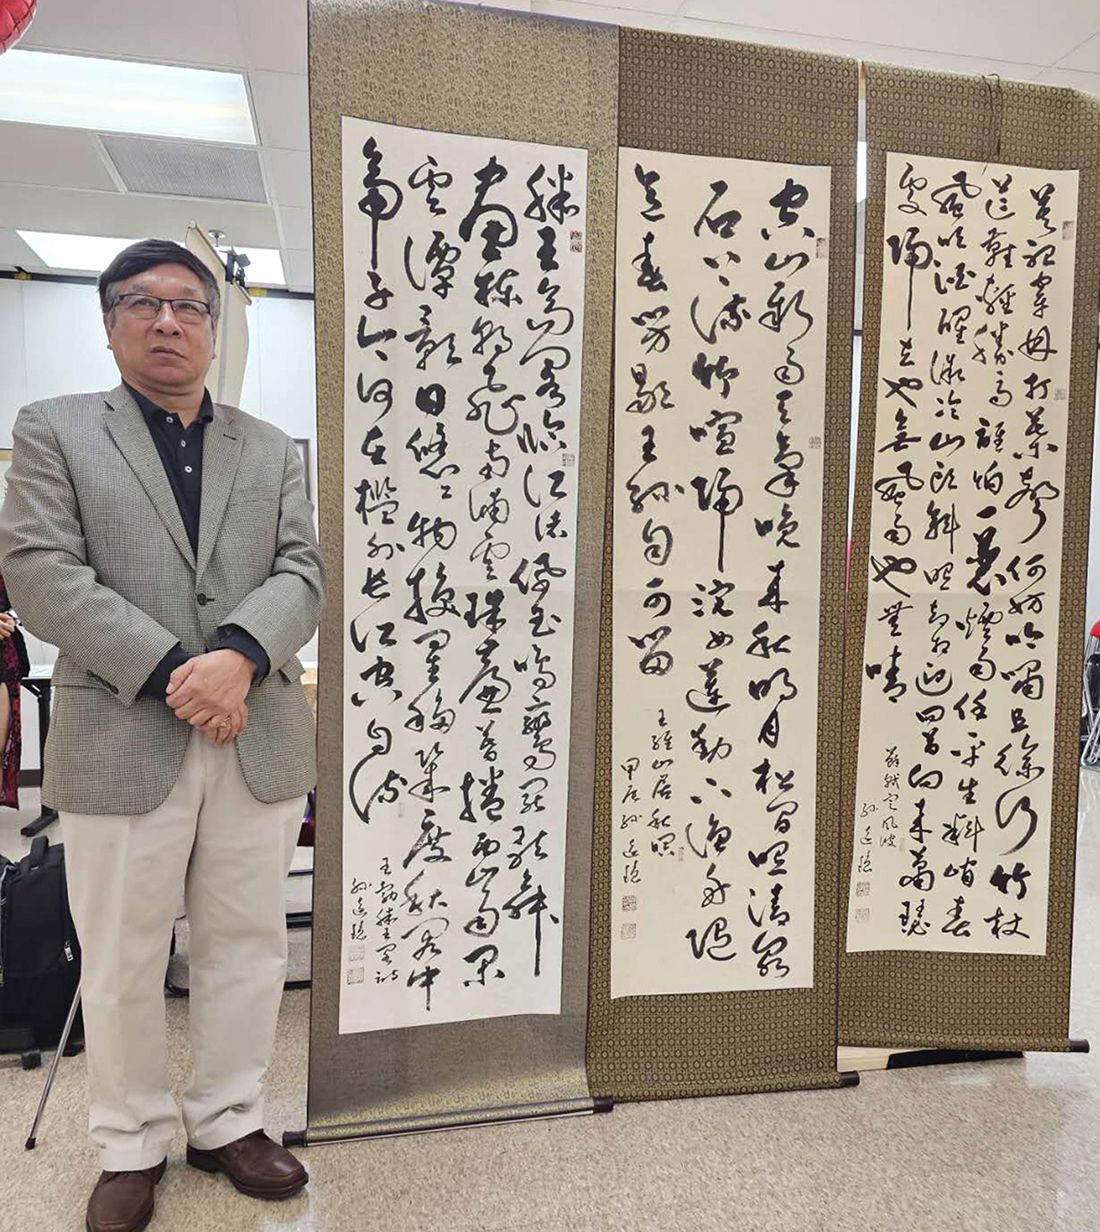 莫聽穿林打葉聲何妨吟嘯且徐行竹杖
芒鞋輕勝馬誰怕一蓑煙雨任平生料峭春
風吹酒醒微冷山頭斜照却相迎回首向來蕭瑟
處歸去也無風雨也無晴
蘇軾定風波
孫
空山新雨後天氣晚來秋明月松間照清泉
石上流竹喧歸浣女蓮動下漁舟隨
意春芳歇王孫自可留
王維山居秋暝
甲辰孫
滕王高閣臨江渚佩玉鳴鸞罷歌舞
畫棟朝飛南浦雲珠簾暮捲西山雨閑
雲潭影日悠悠物換星移幾度秋閣中
帝子今何在檻外長江空自流
王勃滕王閣詩
孫